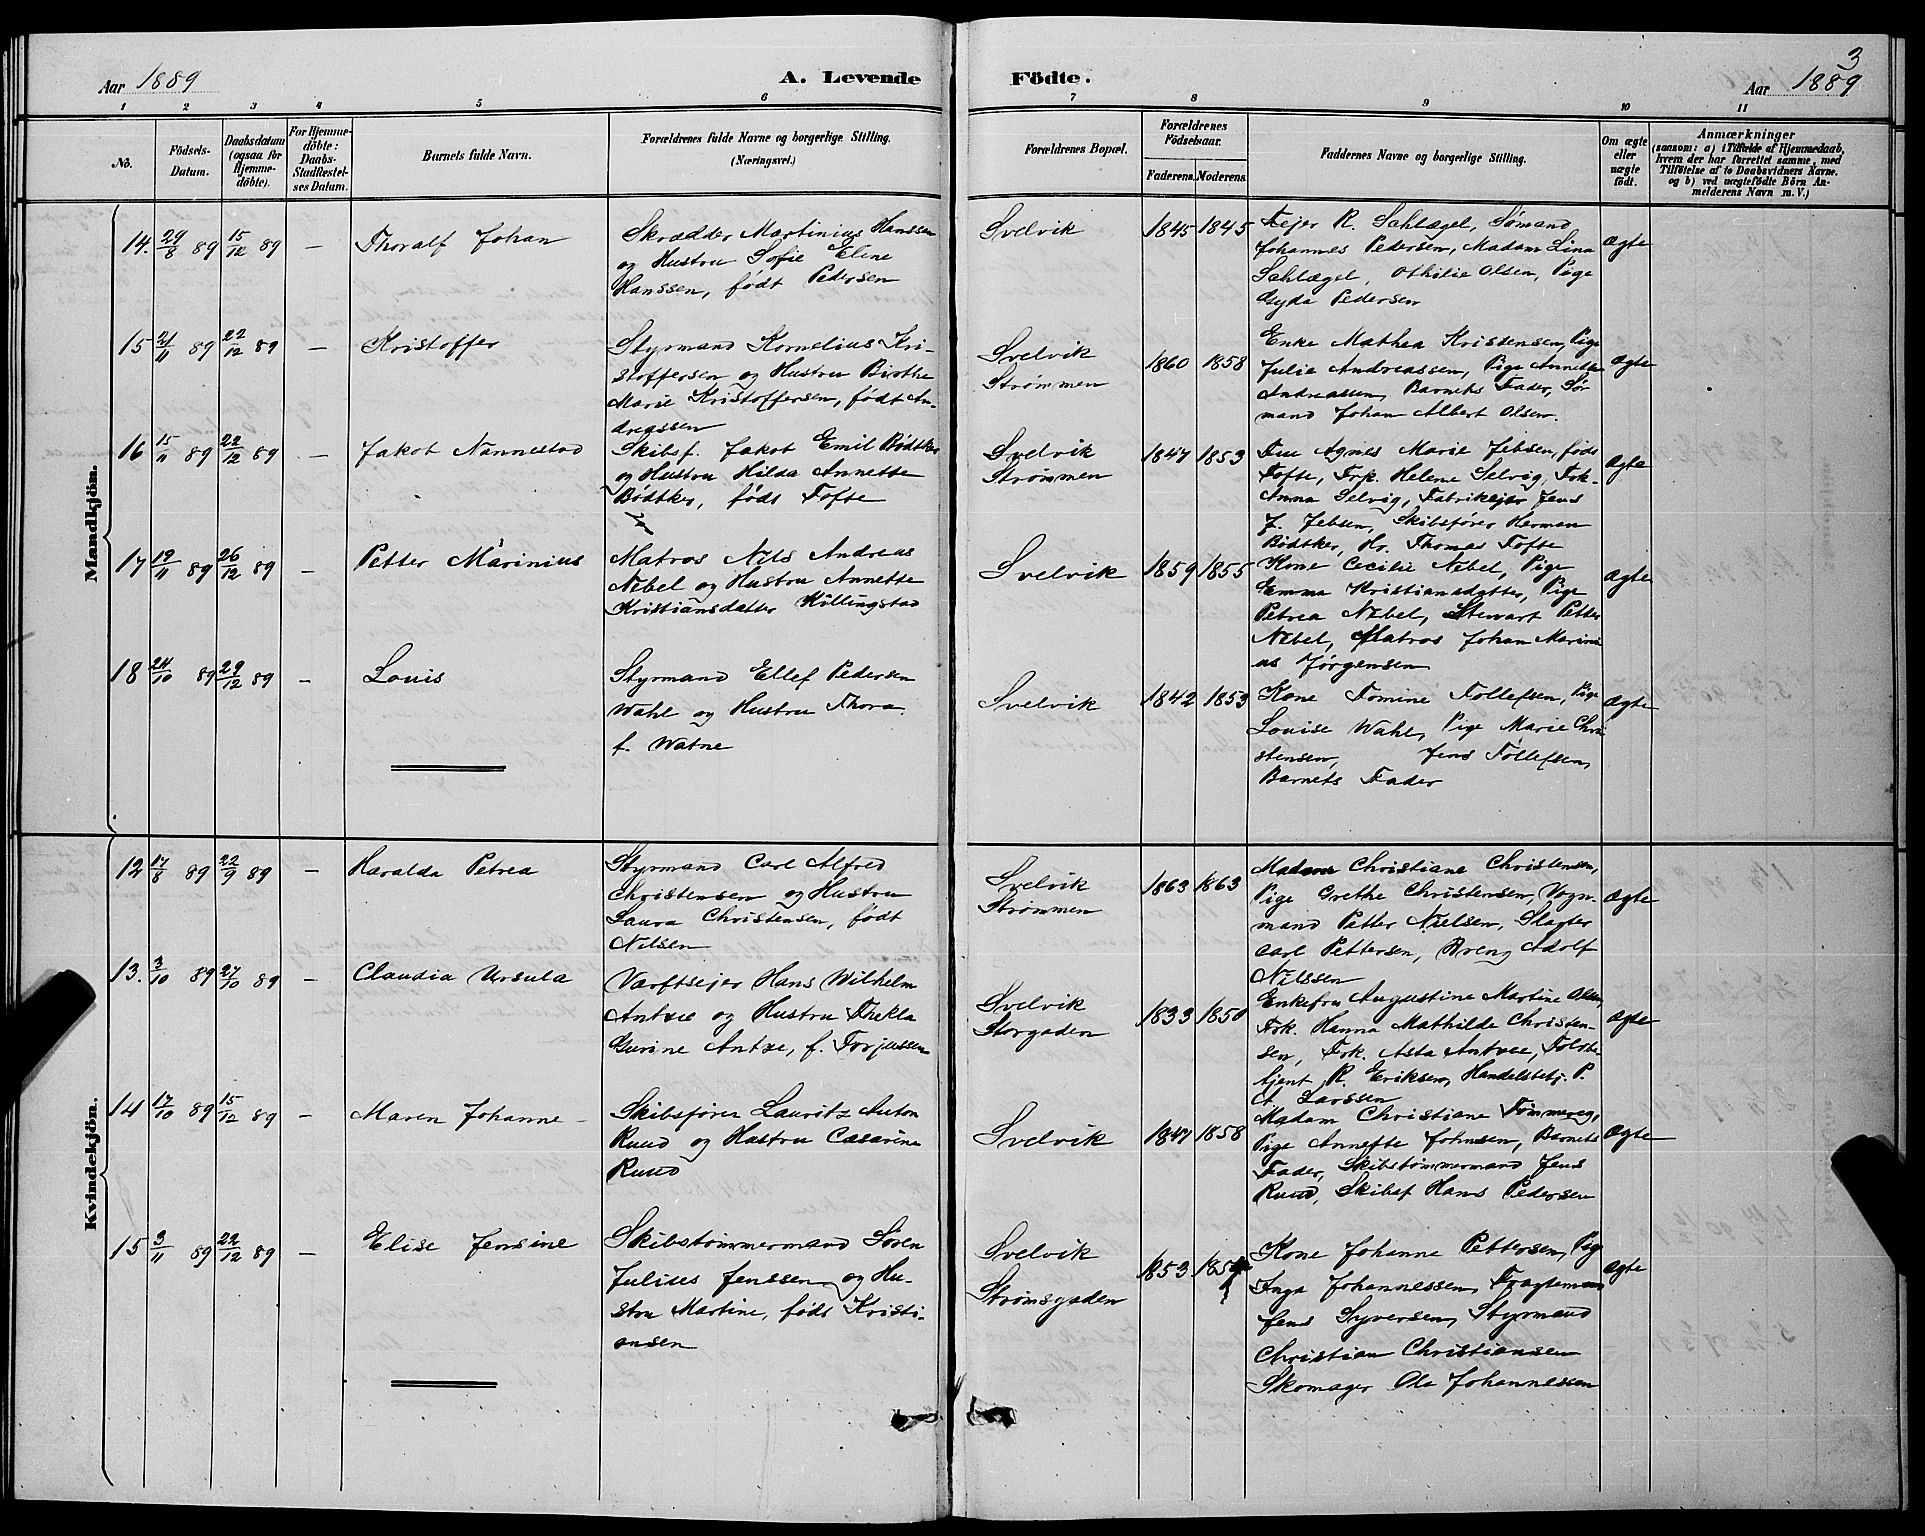 3
Aar 1889
A. Levende Födte.
Aar 1889
1 2 3 4 5 6 7 8 9 10 11
No.
Födsels-
Datum.
Daabsdatum
(ogsaa for
Hjemme-
döbte).
For Hjemme-
döbte:
Daabs-
Stadfæstel-
ses Datum.
Barnets fulde Navn.
Forældrenes fulde Navne og borgerlige Stilling.
(Næringsvei.)
Forældrenes Bopæl.
Forældrenes
Födselsaar.
Faderens. Moderens.
Faddernes Navne og borgerlige Stilling.
Om ægte
eller
uægte
født.
Anmærkninger
(saasom: a) i Tilfælde af Hjemmedaab,
hvem der har forrettet samme, med
Tilføielse af to Daabsvidners Navne.
og b) ved uægtefødte Börn An-
melderens Navn m. V.)
Mandkjön.
14. 29/8 89 15/12 89 – Thoralf Johan
Skrædder Martinius Hanssen
og Hustru Sofie Elene
Hanssen, født Pedersen
Svelvik
1845 1845
Fejer R. Schlægel, Sømand
Johannes Pedersen, Madam Lina
Schlægel, Othilie Olsen, Pige
Gyda Pedersen
Ægte
15 21/11 89 22/12 89 – Kristoffer
Styrmand Kornelius Kri-
stoffersen og Hustru Birthe
Marie Kristoffersen, født An-
dreassen
Svelvik
Strømmen
1860 1858
Enke Mathea Kristensen, Pige
Julie Andreassen, Pige Annette
Andreassen, Barnets Fader, Sør
mand Johan Albert Olsen.
Ægte
16 15/11 89 22/12 89 – Jakob Nannestad
Skibsf. Jakob Emil Bødtker
og Hustru Hilda Annette
Bødtker, føds Tofte
Svelvik
Strømmen
1847 1853
Fru Agnes Marie Jebsen, føds
Tofte, Frk. Helene Selvig, Frk.
Anna Selvig, Fabrikejer Jens
J. Jebsen, Skibsfører Herman
Bødtker, Hr. Thomas Tofte
Ægte
17 19/11 89 26/12 89 – Petter Marinius
Matros Nils Andreas
Nebel og Hustru Annette
Kristiansdatter Killingstad
Svelvik
1859 1855
Kone Cecilie Nebel, Pige
Emma Kristiansdatter, Pige
Petrea Nebel, Stewart Petter
Nebel, Matros Johan Marini
us Jørgensen
Ægte
18 24/10 89 29/12 89 – Louis
Styrmand Ellef Pedersen
Wahl og Hustru Thora
f. Watne
Svelvik
1842 1853
Kone Tomine Tollefsen, Pige
Louise Wahl, Pige Marie Chri
stensen, Jens Tollefsen,
Barnets Fader
Ægte
Kvindekjön.
12 17/8 89 22/9 89 – Haralda Petrea
Styrmand Carl Alfred
Christensen og Hustru
Laura Christensen, født
Nilsen
Svelvik
Strømmen
1863 1863
Madam Christiane Christensen,
Pige Grethe Christensen, Vogn-
mand Petter Nielsen, Slagter
Carl Pettersen, Dreng Adolf
Nilssen
Ægte
13. 3/10 89 27/10 89 – Claudia Ursula
Værftsejer Hans Wilhelm
Antzee og Hustru Thekla
Gurine Antzee, f. Torjussen
Svelvik
Storgaden
1833 1850
Enkefru Augustine Martine Olsen
Frk. Hanna Mathilde Christen-
sen, Frk. Asta Antzee, Toldbe-
tjent R. Eriksen, Handelsbetj. P.
A. Larssen
Ægte
14 17/10 89 15/12 89 – Maren Johanne
Skibsfører Lauritz Anton
Ruud og Hustru Cæsarine
Ruud
Svelvik
1847 1858
Madam Christiane
Pige Annette Johnsen, Barnets
Fader, Skibstømmermand Jens
Ruud, Skibsf Hans Pedersen
Ægte
15 3/11 89 22/12 89 – Elise Jensine
Skibstømmermand Søren
Julius Jenssen og Hu-
stru Martine, føds Kristi-
ansen
Svelvik
Strømsgaden
1853
Kone Johanne Pettersen, Pig
Inga Johannessen, Fragtemand
Jens Syversen, Styrmand
Christian Christiansen
Skomager Ole Johannessen
Ægte